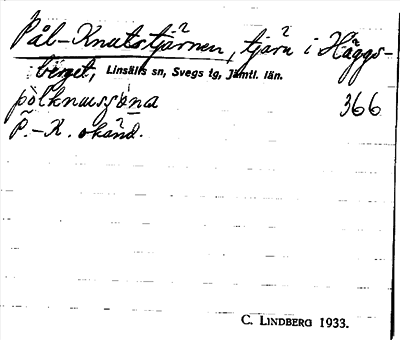 Pål-Knutstjärnen, tjärn i Häggs-
berget, Linsälls sn, Svegs tg, Jämtl. län.
pòlknussɑ̀na 366
P.-K. okänd.
C. LINDBERG 1933.